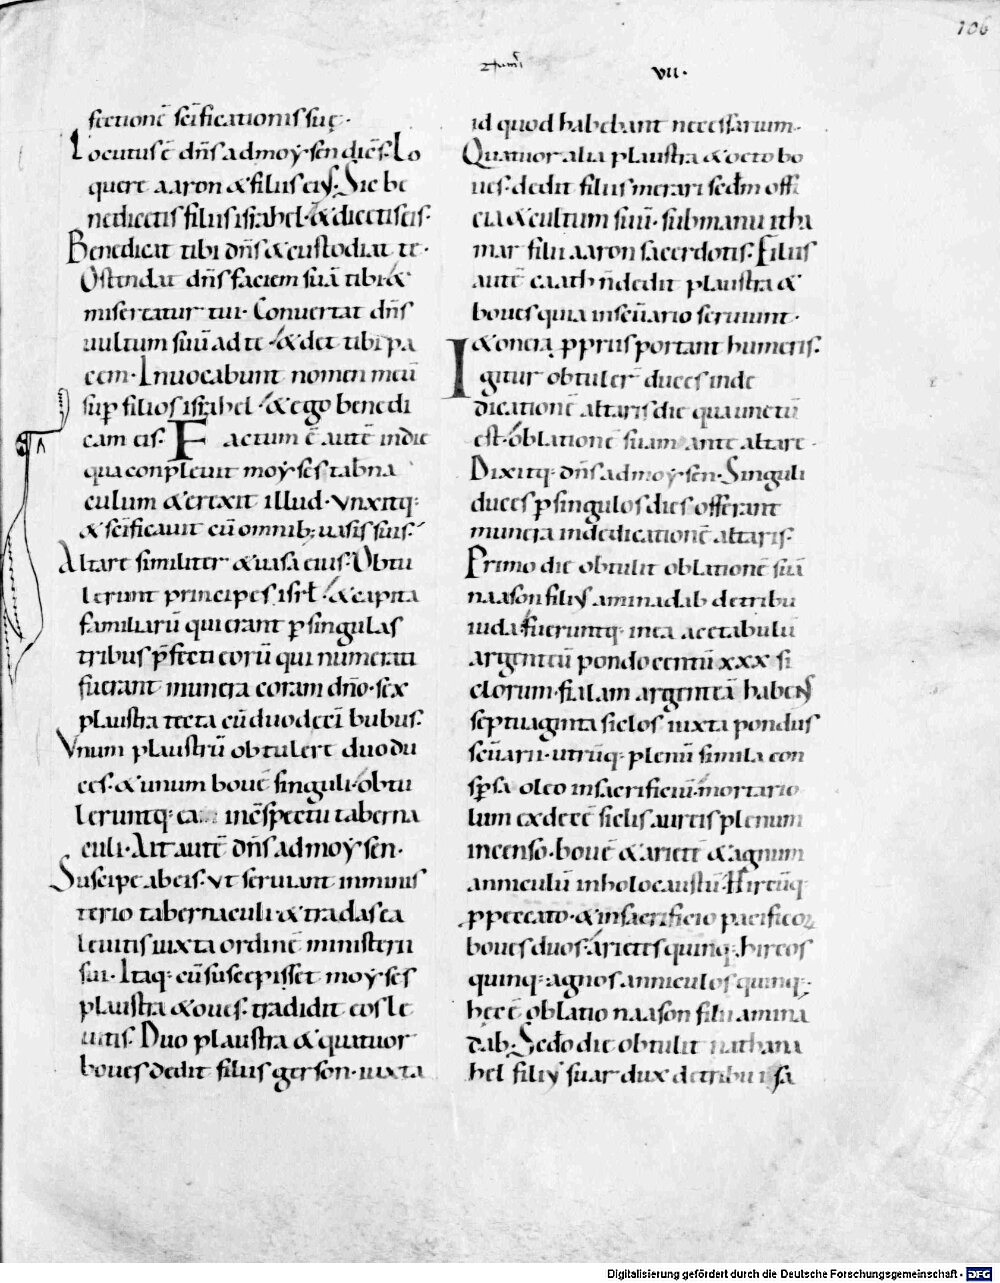 106
VII·
fectionē sc̄ificationis suę·
Locutus ē dn̄s ad moẏsen dicēs· Lo
quere aaron & filiis eiꝰ· Sic be
nedicetis filiis israhel· & dicetis eis·
Benedicat tibi dn̄s & custodiat te·
Ostendat dn̄s faciem suā tibi· &
misereatur tui· Conuertat dn̄s
uultum suū ad te· & det tibi pa
cem· Inuocabunt nomen meū
sup̄ filios israhel· & ego benedi
cam eis· Factum ē autē in die
qua conpleuit moẏses tab̄na
culum & erexit illud· Vnxitq:
& sc̄ificauit cū omnib; uasis suis·
Altare similiter & uasa eius· Obtu
lerunt principes isrl̄· & capita
familiarū qui erant p̄ singulas
tribus p̄fecti eorū qui numerati
fuerant munera coram dn̄o· sex
plaustra tecta cū duodecī bubus·
Vnum plaustrū obtulere duo du
ces· & unum bouē singuli· obtu
leruntq: ea in c̄spectu taberna
culi· Ait autē dn̄s ad moẏsen·
Suscipe ab eis· vt seruiant in minis
terio tabernaculi· & tradas ea
leuitis iuxta ordinē ministerii
sui· Itaq: cū suscepisset moẏses
plaustra & oues· tradidit eos le
uitis· Duo plaustra & quatuor
boues dedit filiis gerson· iuxta
id quod habebant necessarium·
Quatuor alia plaustra & octo bo
ues· dedit filiis merari sed̄m offi
cia & cultum suū· sub manu itha
mar filii aaron sacerdotis· Filiis
autē caath n̄ dedit plaustra &
boues quia in sc̄uario seruiunt·
& onera p̱priis portant humeris·
Igitur obtulerꝰ duces in de
dicationē altaris die qua unctū
est· oblationē suam ante altare·
Dixitq: dn̄s ad moẏsen· Singuli
duces p̄ singulos dies offerant
munera in dedicationē altaris·
Primo die obtulit oblationē suā
naason filiꝰ aminadab de tribu
iuda· Fueruntq: in ea acetabulū
argenteū pondo centū xxx si
clorum· fialam argenteā habens
septuaginta siclos iuxta pondus
sc̄uarii· utrūq: plenū simila con
sp̄sa oleo in sacrificiū· mortario
lum ex decē siclis aureis plenum
incenso· bouē & arietē & agnum
anniculū in holocaustū· Hircūq:
p̱ peccato· & in sacrificio pacificoꝝ
boues duos· arietes quinq: hircos
quinq: agnos anniculos quinq:
hęc ē oblatio naason filii amina
dab· Sed̄o die obtulit nathana
hel filiꝰ suar dux de tribu isa